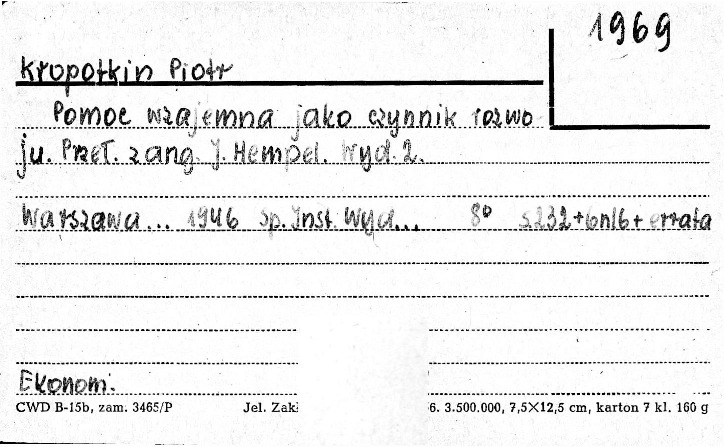 1969
Kropotkin Piotr
Pomoc wzajemna jako czynnik rozwo
ju. Przeł. z ang. J. Hempel. Wyd. 2.
Warszawa... 1946 Sp. Inst. Wyd... 8° s.232+6nlb+errata
Ekonom.
CWD B-15b, zam. 3465/P Jel. Zakł 6. 3.500.000, 7,5×12,5 cm, karton 7 kl. 160 g